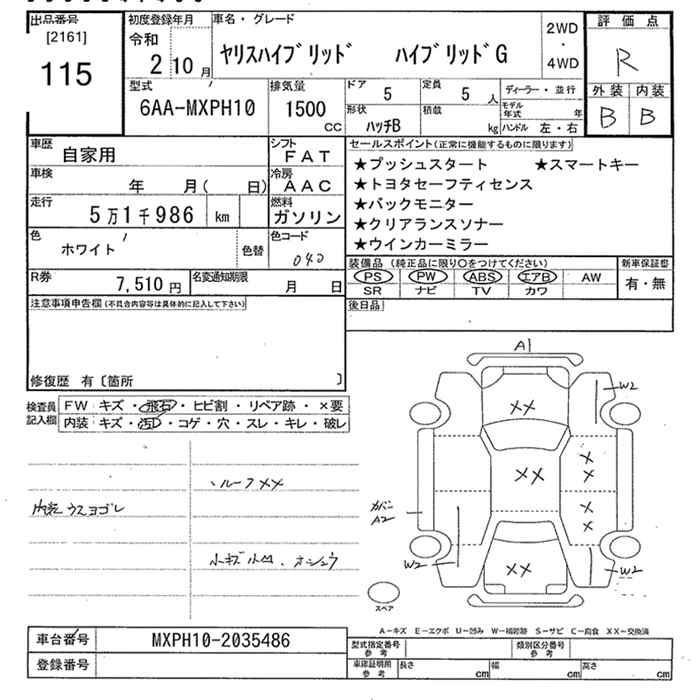 出品番号 初度登録年月 車名・グレード 評価点
[2161] 令和 2WD
115 2 10月 ヤリスハイブリッド ハイブリッドG ・ R
4WD
型式 排気量 ドア 5 定員 5 人 ディーラー・並行 外装 内装
6AA-MXPH10 1500 CC 形状 ハッチB 積載 kg モデル年式 年 B B
ハンドル 左・右
車歴 自家用 シフト FAT セールスポイント(正常に機能するものに限ります)
車検 年 月( 日) 冷房 AAC ★プッシュスタート ★スマートキー
走行 5万1千986 km 燃料 ガソリン ★トヨタセーフティセンス
★バックモニター
色 ホワイト 色替 色コード 040 ★クリアランスソナー
★ウインカーミラー
R券 7,510円 名変通知期限 月 日 装備品(純正品に限り○をつけてください) 新車保証書
PS PW ABS エアB AW 有・無
SR ナビ TV カワ
注意事項申告欄(不具合内容等は具体的に記入して下さい) 後日品
修復歴 有〔箇所 〕
検査員記入欄 FW キズ・飛石・ヒビ割・リペア跡・×要
内装 キズ・汚レ・コゲ・穴・スレ・キレ・破レ
A1
W2
XX
・ルーフXX XX
内装ウスヨゴレ カバーA2
小キズ小凹、
W2 XX W2
スペア
A-キズ E-エクボ U-凹み W-補修跡 S-サビ C-腐食 XX-交換済
車台番号 MXPH10-2035486 型式指定番号 参考 類別区分番号 参考
登録番号 車庫証明用 参考 長さ cm 幅 cm 高さ cm